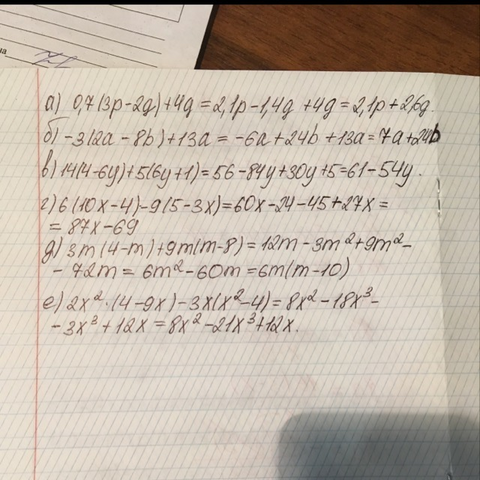 а) 0,7(3p-2g)+4g=2,1p-1,4g+4g=2,1p+2,6g.
б) -3(2a-8b)+13a=-6a+24b+13a=7a+24b
в) 14(4-6y)+5(6y+1)=56-84y+30y+5=61-54y.
г) 6(10x-4)-9(5-3x)=60x-24-45+27x=
=87x-69
д) 3m(4-m)+9m(m-8)=12m-3m²+9m²-
-72m=6m²-60m=6m(m-10)
е) 2x²·(4-9x)-3x(x²-4)=8x²-18x³-
-3x³+12x=8x²-21x³+12x.